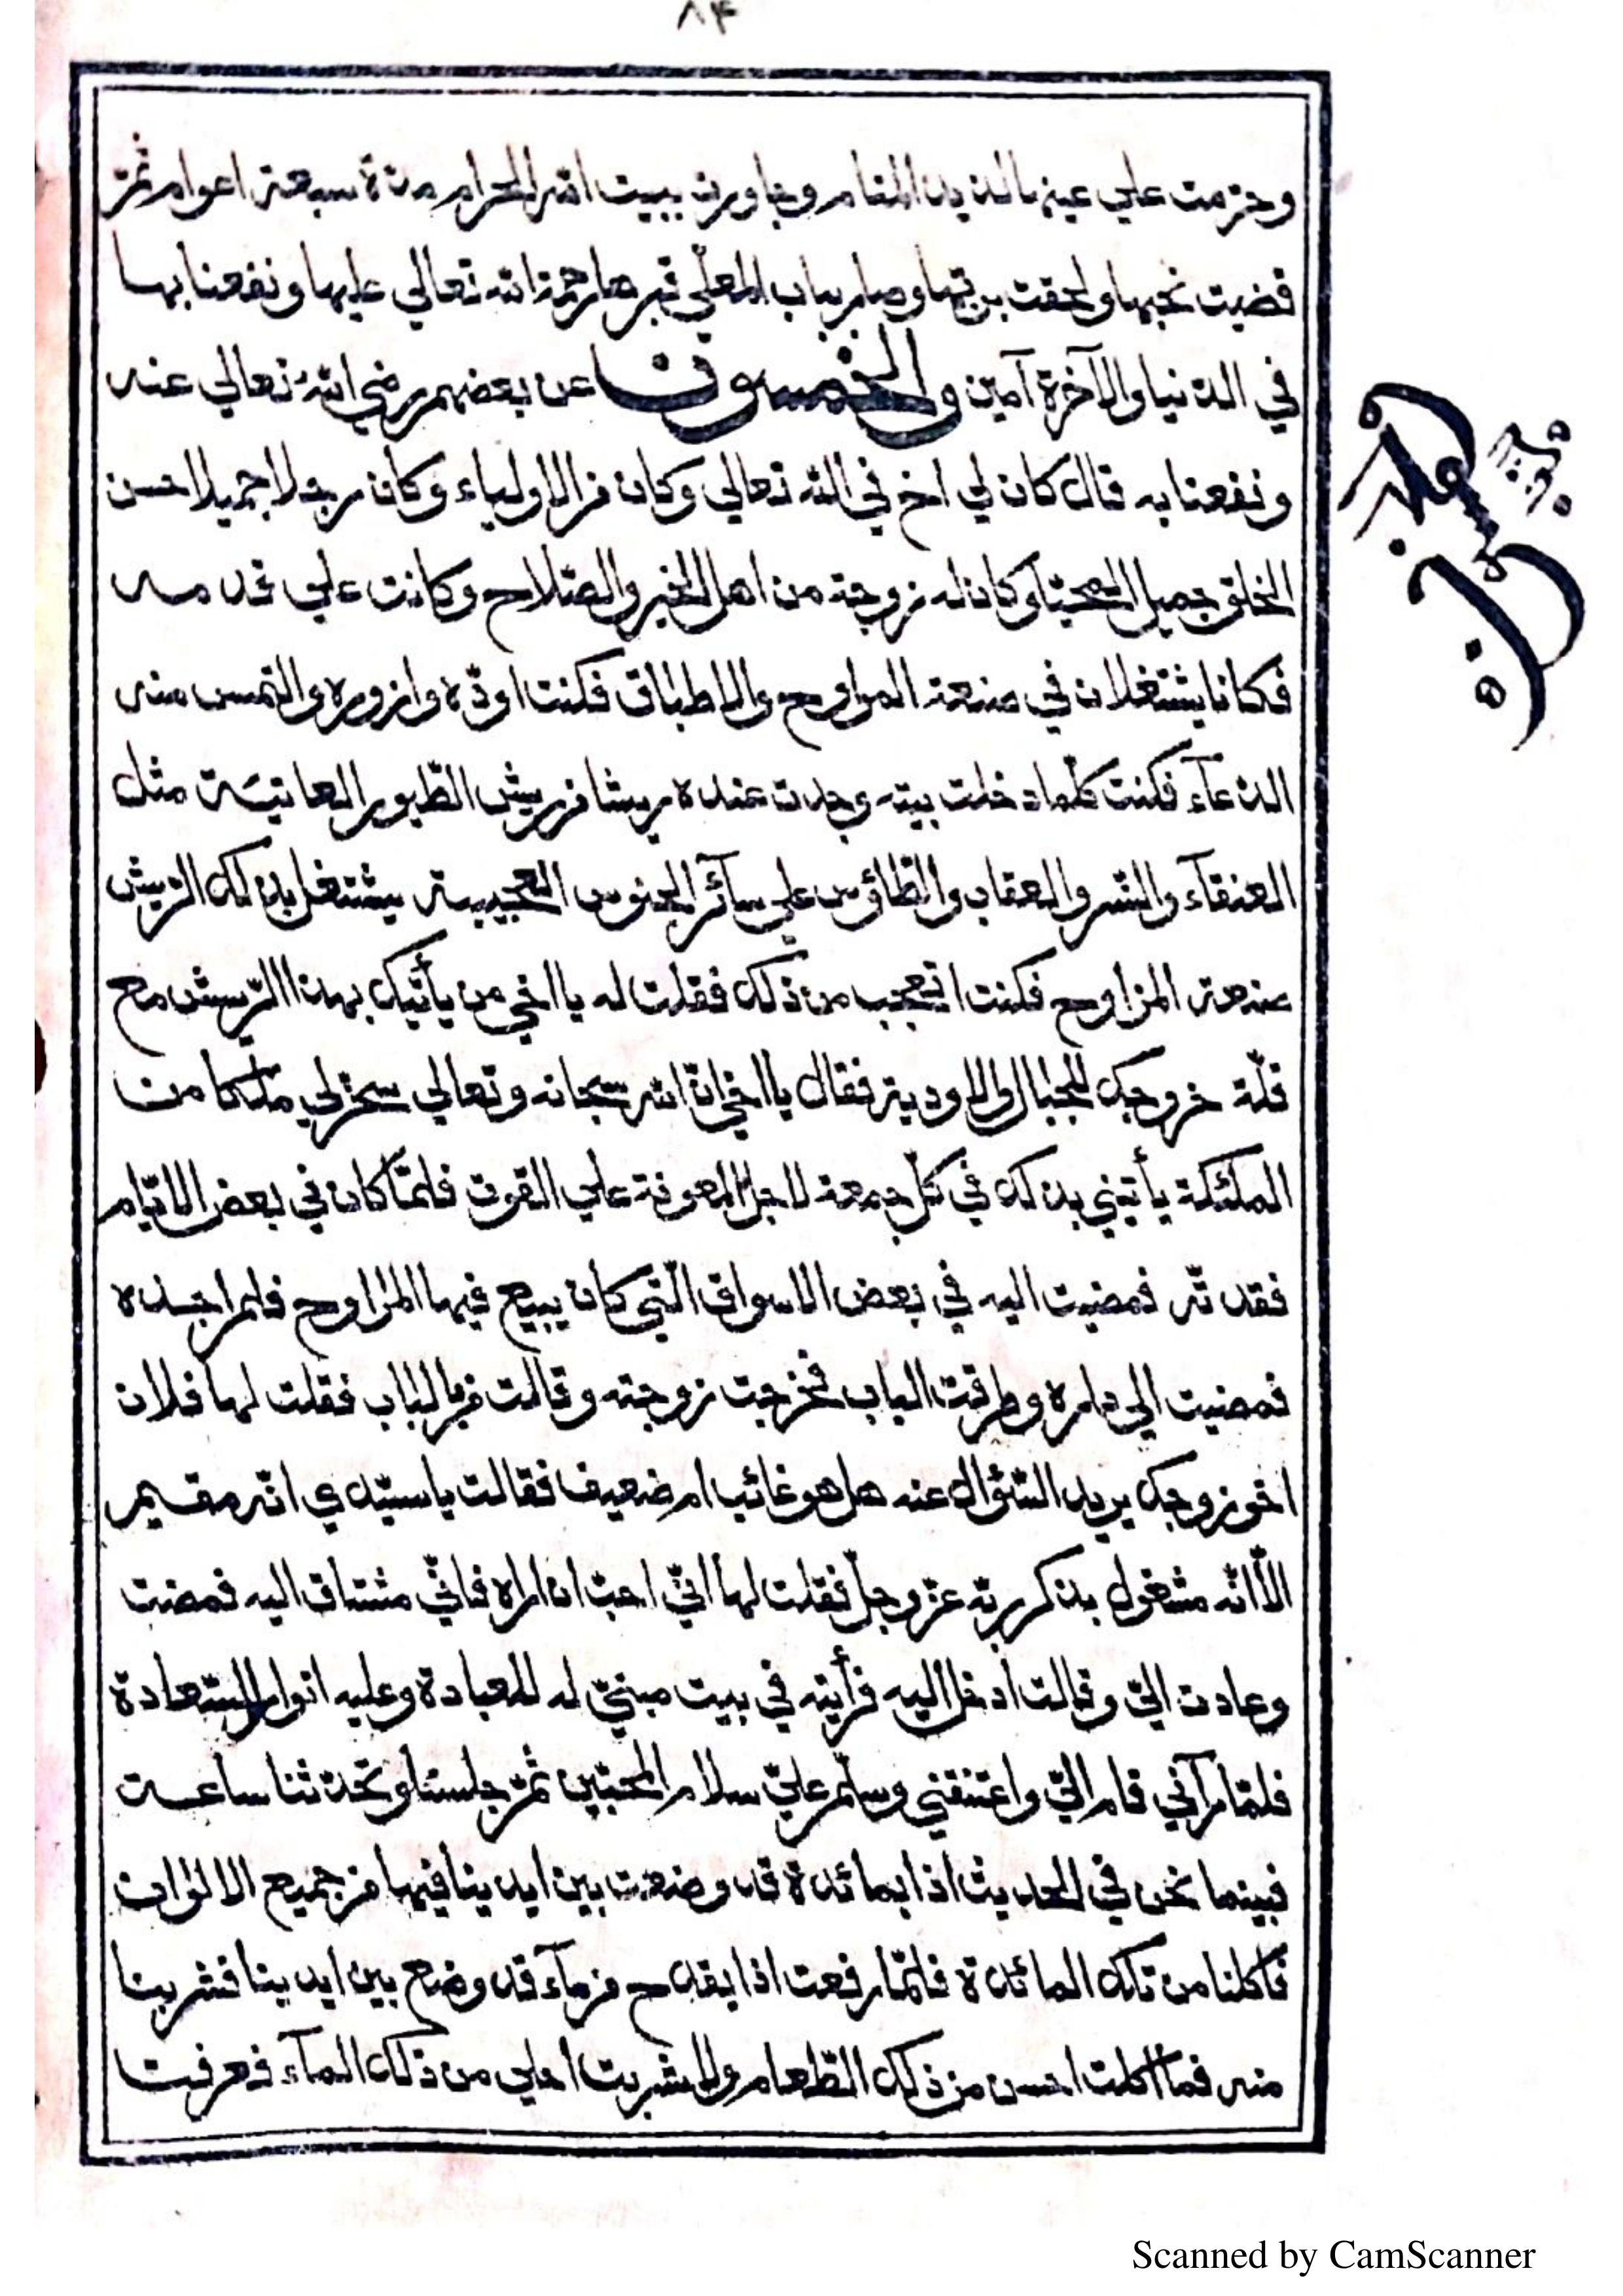 ٨۴
وحرّمت علي عينها لذيذ المنام وجاورت ببيت الله الحرام مدة سبعة اعوام ثمّ
قضيت نحبها ولحقت بربّها وصار بباب المعلّي قبرها رحمة الله تعالي عليها ونفعنا بها
في الدنيا والآخرة آمين والخمسون عن بعضهم رضي الله تعالي عنه
ونفعنا به قال كان لي اخ في الله تعالي وكان من الاولياء وكان رجلا جميلا حسن
الخلق جميل المحيّا وكان له زوجة من اهل الخير والصّلاح وكانت علي قدمه
فكانا يشتغلان في صنعة المراوح والاطباق فكنت اودّه وازوره والتمس منه
الدعآء فكنت كلّما دخلت بيته وجدت عنده ريشا من ريش الطّيور العاتيّة مثل
العنقآء والنّسر والعقاب والطّاؤس علي سآئر الجنوس العجيبة يشتغل بذلك الرّيش
صنعة المراوح فكنت اتعجّب من ذلك فقلت له يا اخي من يأتيك بهذا الرّيش مع
قلّة خروجك للجبال والاودية فقال يا اخي انّ الله سبحانه وتعالي سخّر لي ملكا من
الملئكة يأتيني بذلك في كلّ جمعة لاجل المعونة علي القوت فلمّا كان في بعض الايّام
فقدتّه فمضيت اليه في بعض الاسواق الّتي كان يبيع فيها المراوح فلم اجده
فمضيت الي داره وطرقت الباب فخرجت زوجته وقالت من بالباب فقلت لها فلان
اخو زوجك يريد السّؤال عنه هل هو غائب ام ضعيف فقالت يا سيّدي انّه مقيم
الاّ انّه مشغول بذكر ربّه عزّ وجلّ فقلت لها انّي احبّ ان اراه فانّي مشتاق اليه فمضت
وعادت اليّ وقالت ادخل اليه فرأيته في بيت مبنيّ له للعبادة وعليه انوار السّعادة
فلمّا رآني قام اليّ واعتنقني وسلّم عليّ سلام المحبّين ثمّ جلسنا وتحدّثنا ساعة
فبينما نحن في الحديث اذا بمائدة قد وضعت بين ايدينا فيها من جميع الالوان
فاكلنا من تلك المائدة فلمّا رفعت اذا بقدح من مآء قد وضع بين ايدينا فشربنا
منه فما اكلت احسن من ذلك الطّعام ولا شربت احلي من ذلك المآء فعرفت
Scanned by CamScanner